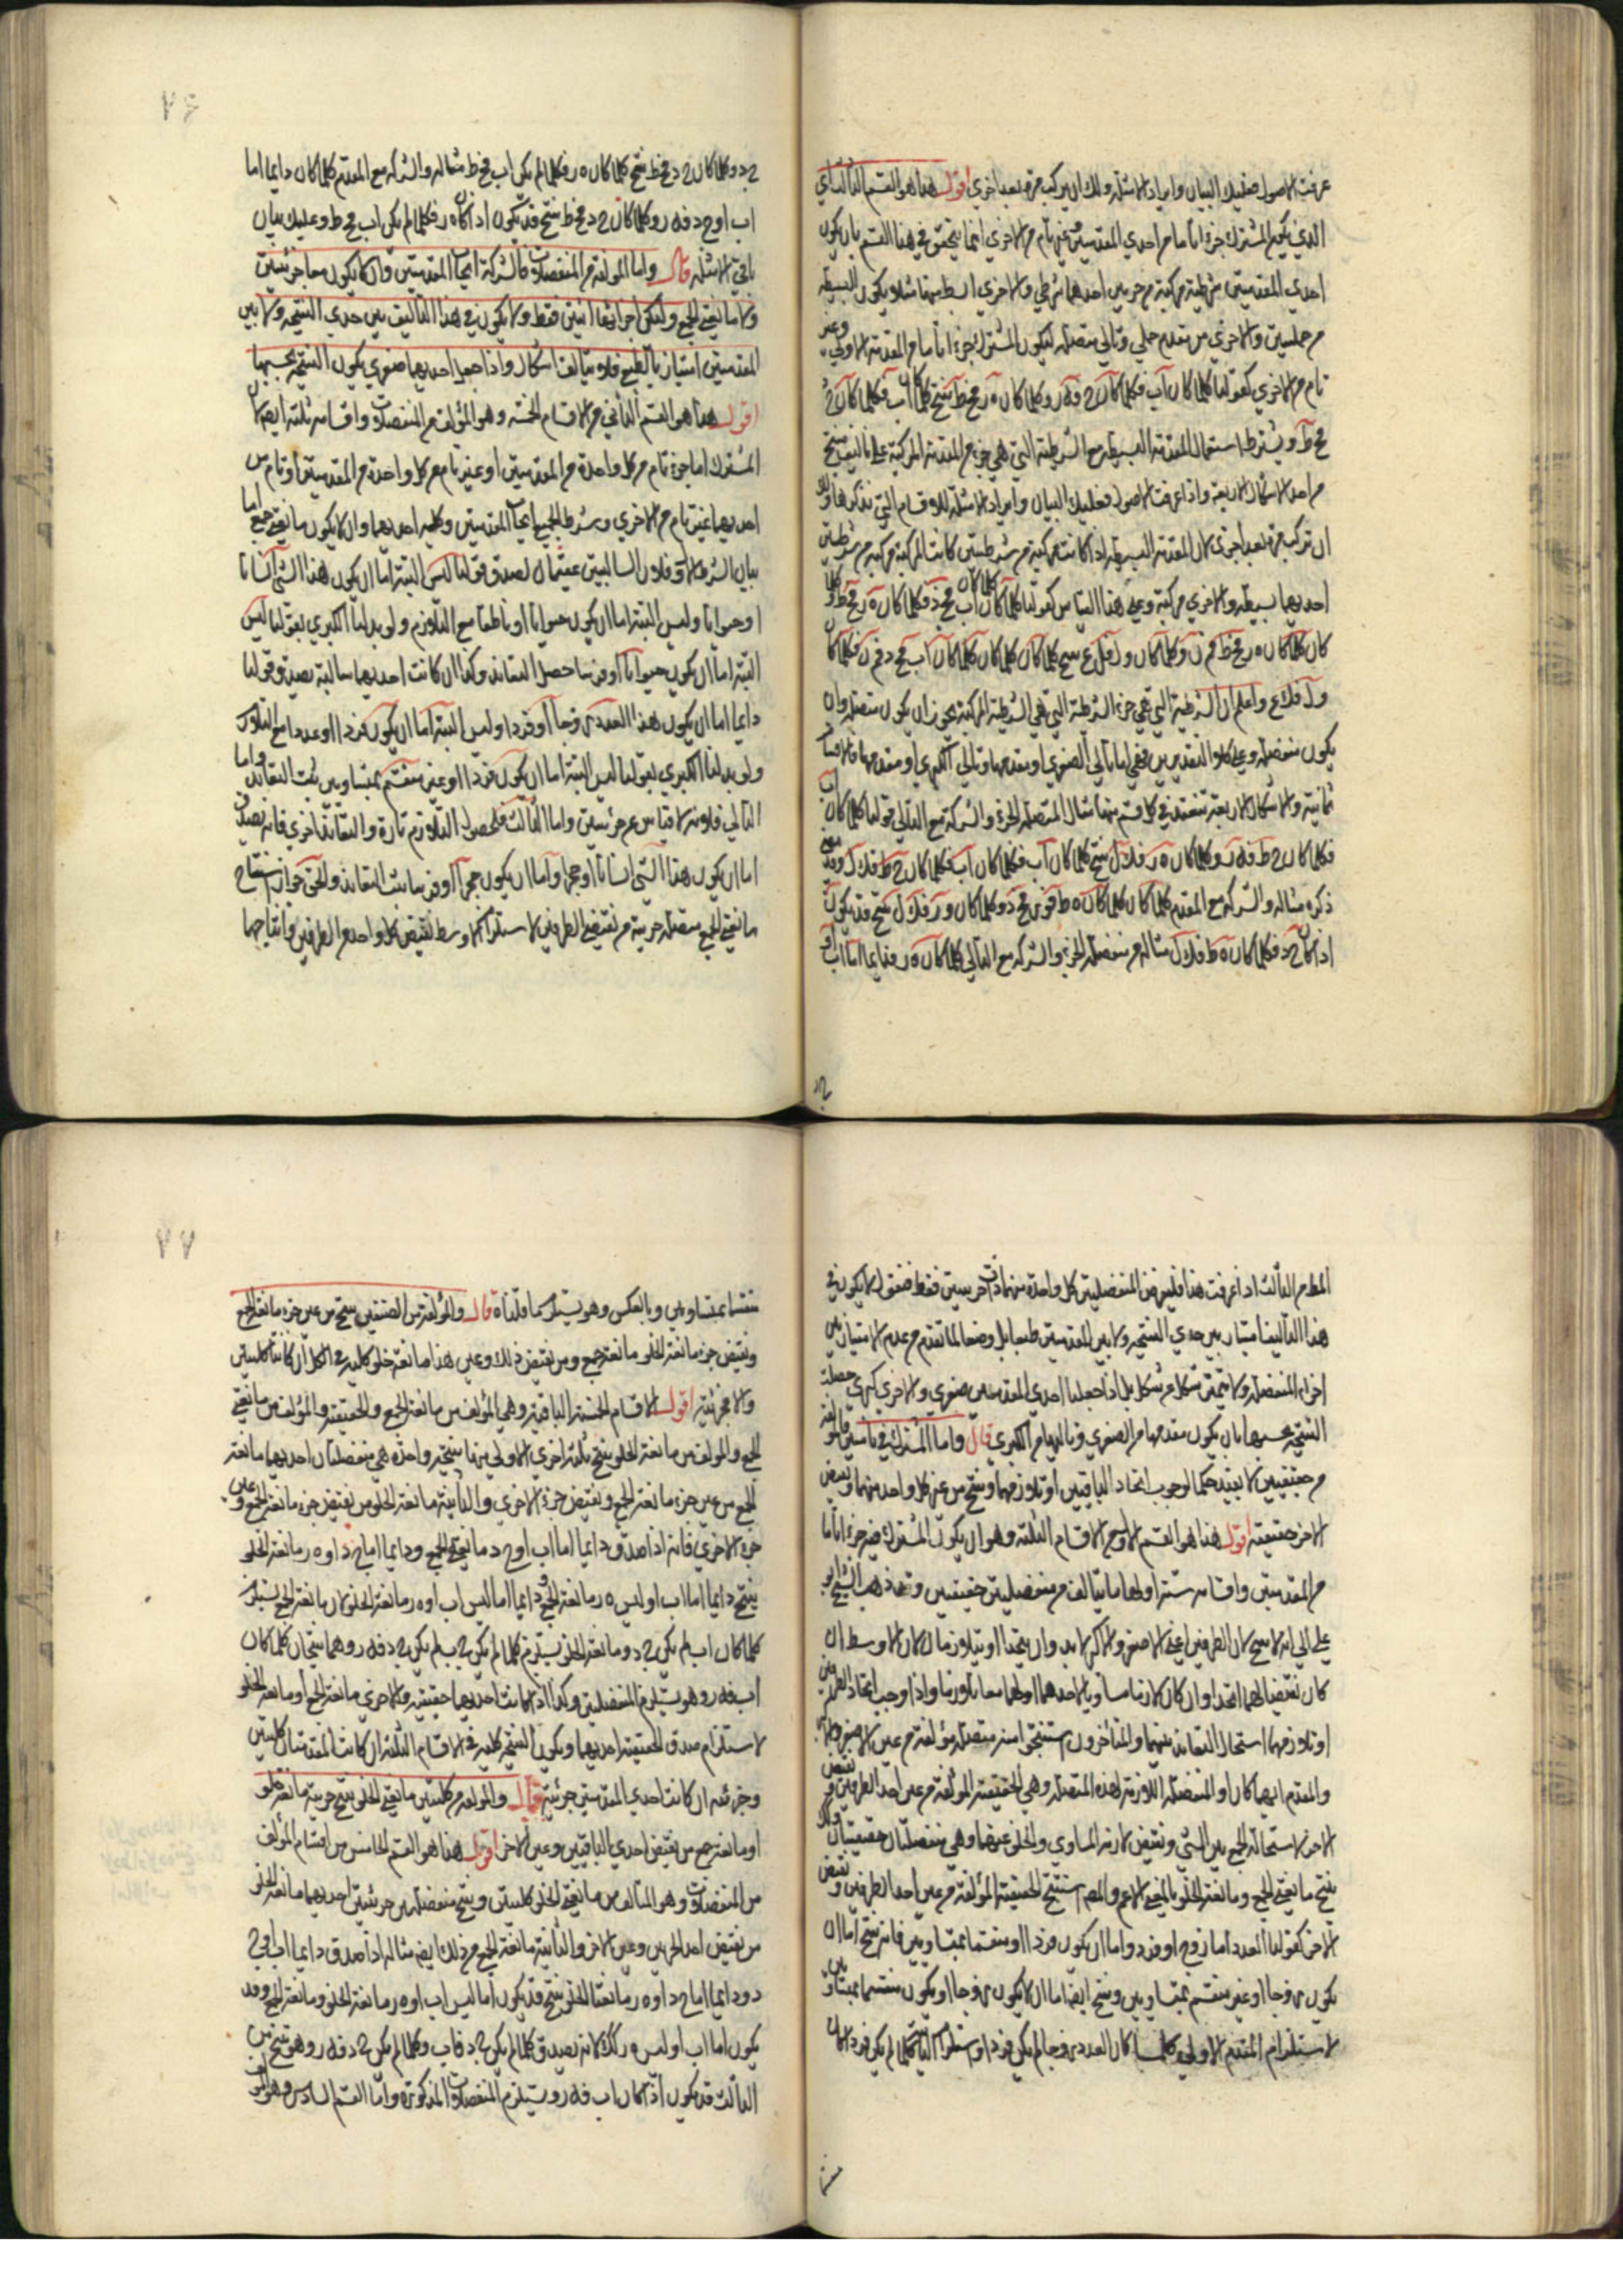 عرفت الاصول فعليك البيان وايراد الامثلة ولك ان تركب مرة بعد اخري اقول هذا هو القسم الثالث اي
الذي يكون المشترك جزءا تاما من احدي المقدمتين غير تام من الاخري انما يتحقق في هذا القسم بان يكون
احدي المقدمتين شرطية مركبة من جزئين احدهما شرطي والاخري ابسط منها مثلا ويكون البسيطة
من حمليتين والاخري من مقدم حملي وتالي متصلة ليكون المشترك جزءا تاما من المقدمة الاولي وغير
تام من الاخري كقولنا كلما كان اب فكلما كان
ويشترط استعمال المقدمة البسيطة مع الشرطية التي هي جزء من المقدمة المركبة علي تاليف منتج
من احد الاشكال الاربعة واذا عرفت الاصول فعليك البيان وايراد الامثلة للاقسام التي نذكرها ولك
ان تركب مرة بعد اخري لان المقدمة البسيطة اذا كانت مركبة من شرطيتين كانت المركبة مركبة من شرطيتين
احديهما بسيطة والاخري مركبة وعلي هذا القياس كقولنا كلما كان
كان كلما كان
واعلم ان الشرطية التي هي جزء الشرطية التي هي الشرطية المركبة يجوز ان يكون متصلة وان
يكون منفصلة وعلي كلا التقديرين فهي اما تالي الصغري او مقدمها وتالي الكبري او مقدمها فالاقسام
ثمانية والاشكال الاربعة تنعقد في كل قسم منها مثال المتصلة الجزء والشركة مع التالي قولنا كلما كان اب
فكلما كان
ذكره مثاله والشركة مع المقدم كلما كان كلما كان
اذا كان مثاله من منفصلة الجزء والشركة مع التالي كلما كان ه ر فدايما اما اب او
٧٦
ج د وكلما كان ينتج كلما كان ه ر فكلما لم يكن اب مثاله والشركة مع المقدم كلما كان دايما اما
اب او ج د فه ر وكلما كان ينتج قد يكون اذا كان ه ر فكلما لم يكن اب وعليك بيان
باقي الامثلة قال واما المولفة من المنفصلات فالشركة ايجاب المقدمتين وان لا يكون معا جزئيتين
ولا مانعتي الجمع وليكن اجزائها اثنين فقط ولا يكون في هذا التاليف بين حدي النتيجة ولا بين
المقدمتين امتياز بالطبع فلا يتالف اشكال واذا جعل احديهما صغري يكون النتيجة بحسبها
اقول هذا هو القسم الثاني من الاقسام الخمسة وهو المؤلف من المنفصلات واقسامه ثلثة ايضا لان
المشترك اما جزء تام من كل واحدة من المقدمتين او غير تام من كل واحدة من المقدمتين او تام من
احديهما غير تام من الاخري وشرط الجميع ايجاب المقدمتين وكلية احديهما وان لا يكون مانعتي جمع اما
بيان الشرط الاول فلان السالبتين عقيمتان لصدق قولنا ليس البتة اما ان يكون هذا الشئ انسانا
او حيوانا وليس البتة اما ان يكون حيوانا او ناطقا مع التلازم ولو بدلنا الكبري بقولنا ليس
البتة اما ان يكون حيوانا او فرسا حصل التعاند وكذا ان كانت احديهما سالبة لصدق قولنا
دايما اما ان يكون هذا العدد زوجا او فردا وليس البتة اما ان يكون فردا او عددا مع التلازم
ولو بدلنا الكبري بقولنا ليس البتة اما ان يكون فردا او غير منقسم بمتساويين ثبت التعاند واما
الثاني فلانه لا قياس عن جزئيتين واما الثالث فلحصول التلازم تارة والتعاند اخري فانه يصدق
اما ان يكون هذا الشئ انسانا او حجرا واما ان يكون حجرا او فرسا ثبت التعاند والحق جواز استنتاج
مانعتي الجمع متصلة جزئية من نقيضي الطرفين لاستلزام الاوسط لنقيض كل واحد من الطرفين وانتاجهما
المط من الثالث اذا عرفت هذا فليفرض المنفصلتين كل واحدة منهما ذات جزئين فقط فنقول لا يكون في
هذا التاليف امتياز بين حدي النتيجة ولا بين المقدمتين طبعا بل وضعا لما تقدم من عدم الامتياز بين
اجزاء المنفصلة ولا يتميز شكل عن شكل بل اذا جعلنا احدي المقدمتين صغري والاخري كبري حصلت
النتيجة بحسبها بان يكون مقدمها من الصغري وتاليها من الكبري قال واما المشترك في تامين فالمؤلفة
من حقيقيين لا يفيد حكما لوجوب اتحاد الباقيين او تلازمهما وينتج من عين كل واحد منهما ونقيض
الاخر حقيقية اقول هذا هو القسم الاول من الاقسام الثلثة وهو ان يكون المشترك فيه جزءا تاما
من المقدمتين واقسامه ستة اولها ما يتالف من منفصلتين حقيقيتين وقد ذهب الشيخ ابو
علي الي انه لا ينتج لان الطرفين اعني الاصغر والاكبر لا بد وان يتحدا او يتلازما لان الاوسط ان
كان نقيضا لهما اتحدا وان كان لازما مساويا لاحدهما او لهما معا تلازما واذا وجب اتحاد الطرفين
او تلازمهما استحال التعاند بينهما والمتأخرون استنتجوا منه متصلة مؤلفة من عين الاصغر والاكبر
والمقدم ايهما كان او المنفصلة اللازمة لهذه المتصلة وهي الحقيقية المؤلفة من عين احد الطرفين ونقيض
الاخر لاستحالة الجمع بين الشئ ونقيض لازمه المساوي والخلو عنهما وهي منفصلتان حقيقيتان
ينتج مانعتي الجمع ومانعة الخلو بالمعني الاعم والمص استنتج الحقيقية المؤلفة من عين احد الطرفين ونقيض
الاخر كقولنا العدد اما زوج او فرد واما ان يكون فردا او منقسما بمتساويين فانه ينتج اما ان
يكون زوجا او غير منقسم بمتساويين وينتج ايضا اما ان لا يكون زوجا او يكون منقسما بمتساويين
لاستلزام المقدم الاولي كلما كان العدد زوجا لم يكن فردا واستلزام الثانية كلما لم يكن فردا كان
٧٧
منقسما بمتساويين وبالعكس وهو يستلزم ما قلناه قال والمؤلفة من الصنفين ينتج من عين جزء مانعة الجمع
ونقيض جزء مانعة الخلو مانعة جمع ومن نقيض ذلك وعين هذا مانعة خلو كلية في الكل ان كانتا كليتين
والا جزئية اقول الاقسام الخمسة الباقية وهي المؤلف من مانعة الجمع والحقيقية والمؤلف من مانعتي
الجمع والمولف من مانعة الخلو ينتج ثلثة اخري الاولي منها نتيجة واحدة هي منفصلتان احديهما مانعة
الجمع من عين جزء مانعة الجمع ونقيض جزء الاخري والثانية مانعة الخلو من نقيض جزء مانعة الجمع وعين
جزء الاخري فانه اذا صدق دايما اما اب او ج د مانعتي الجمع ودايما اما ج د او ه ر مانعة الخلو
ينتج دايما اما اب او ليس ه ر مانعة الجمع ودايما اما ليس اب او ه ر مانعة الخلو لان مانعة الجمع يستلزم
كلما كان اب لم يكن ج د ومانعة الخلو يستلزم كلما لم يكن ج د فه ر وهما ينتجان كلما كان
اب فه ر وهو يستلزم المنفصلتين وكذا اذا كانت احديهما حقيقية والاخري مانعة الجمع او مانعة الخلو
لاستلزام صدق الحقيقية احديهما ويكون النتيجة كلية في الاقسام الثلثة ان كانت المقدمتان كليتين
وجزئية ان كانت احدي المقدمتين جزئية قال والمولفة من كليتين مانعتي الخلو ينتج جزئية مانعة خلو
او مانعة جمع من نقيض احدي الباقيين وعين الاخر اقول هذا هو القسم الخامس من اقسام المؤلف
من المنفصلات وهو المتالف من مانعتي الخلو كليتين وينتج منفصلتين جزئيتين احديهما مانعة الخلو
من نقيض احد الجزئين وعين الاخر والثانية مانعة الجمع من ذلك ايضا مثاله اذا صدق دايما اما اب او ج
د ودايما اما ج د او ه ر مانعتا الخلو ينتج قد يكون اما ليس اب او ه ر مانعة الخلو ومانعة الجمع وقد
يكون اما اب او ليس ه ر كك لانه يصدق كلما لم يكن ج د فاب وكلما لم يكن ج د فه ر وهو ينتج من
الثالث قد يكون اذا كان اب فه ر ويستلزم المنفصلات المذكورة واما القسم السادس وهو المؤلف